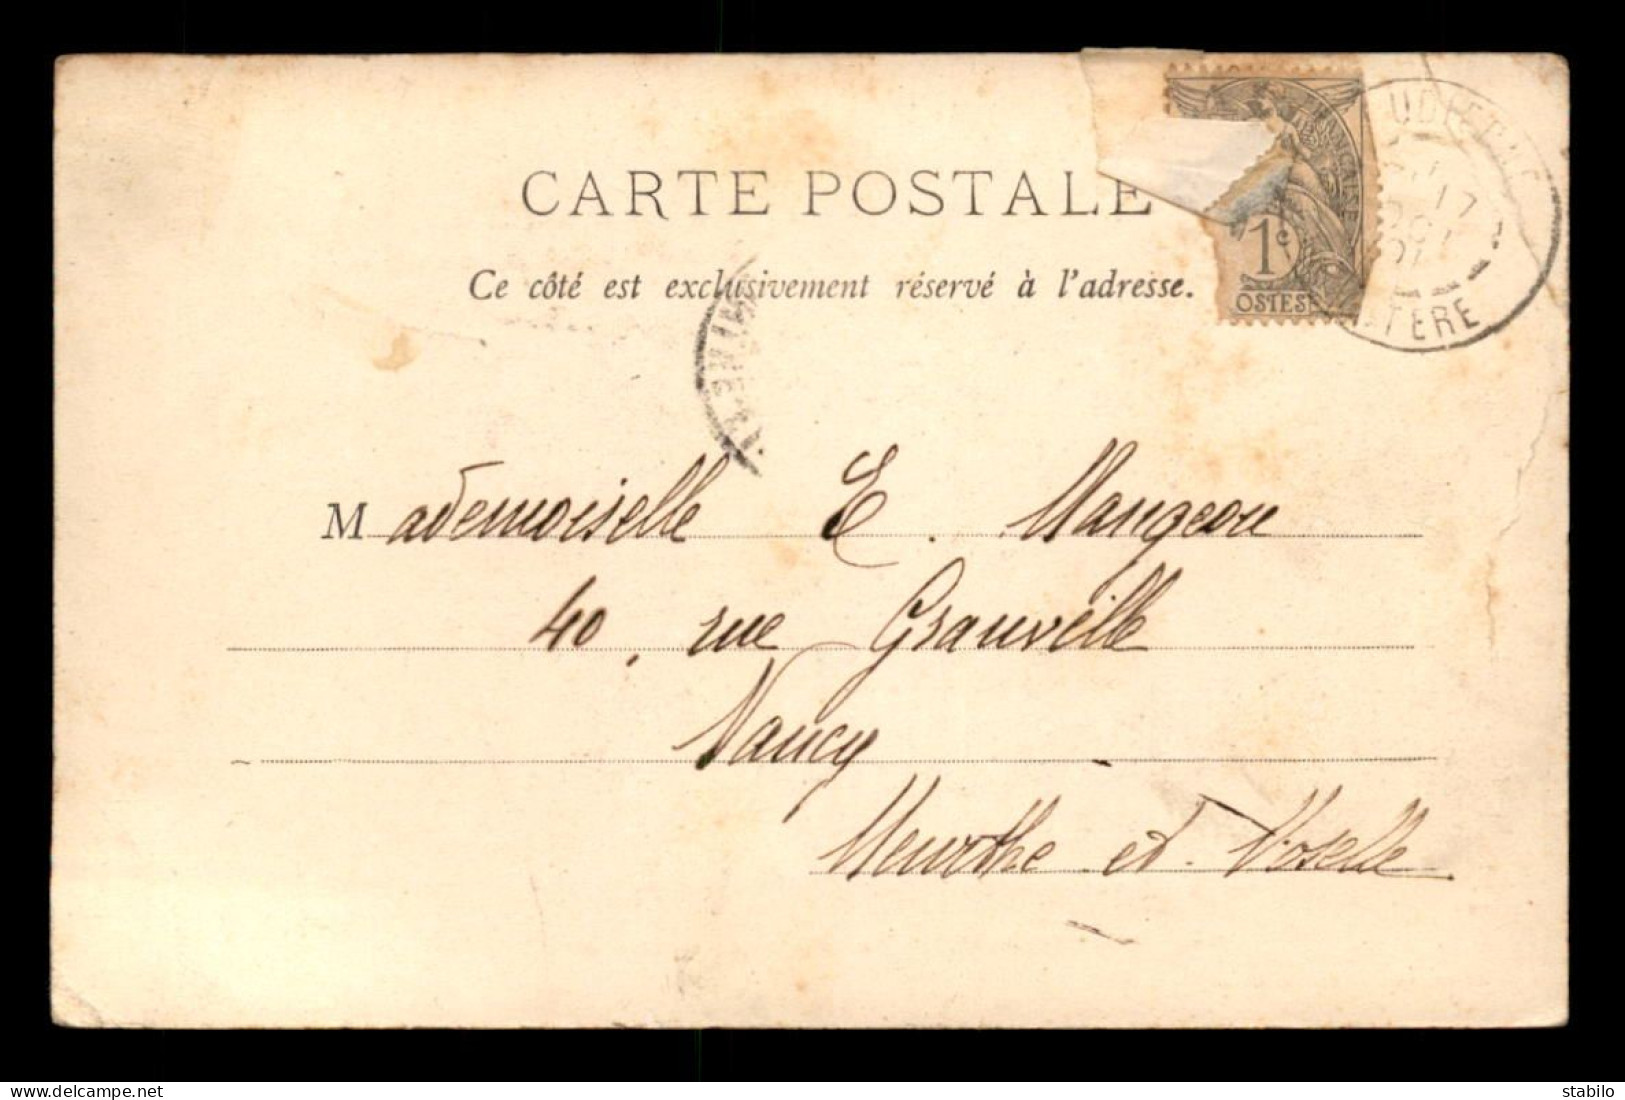 CARTE POSTALE
Ce côté est exclusivement réservé à l'adresse.
1c
FRANÇAISE
OSTES
UDIERNE
17
TERE
Mademoiselle E. Mangeon
40, rue Granville
Nancy
Meurthe et Moselle
www.delcampe.net
stabilo